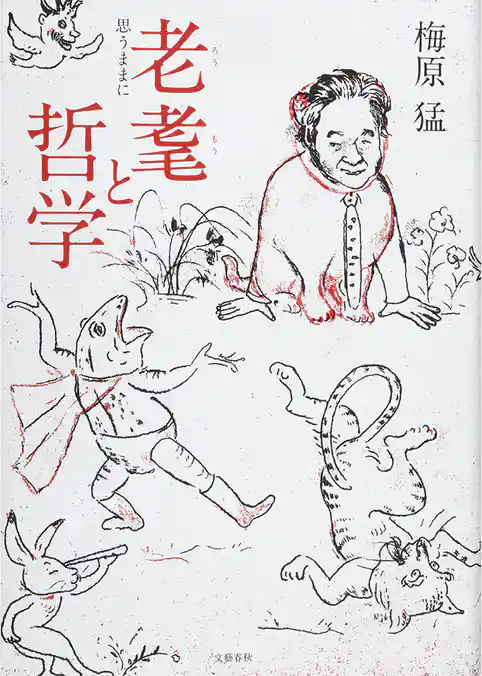 梅原 猛
老耄と
哲学
ろう
もう
思うままに
文藝春秋